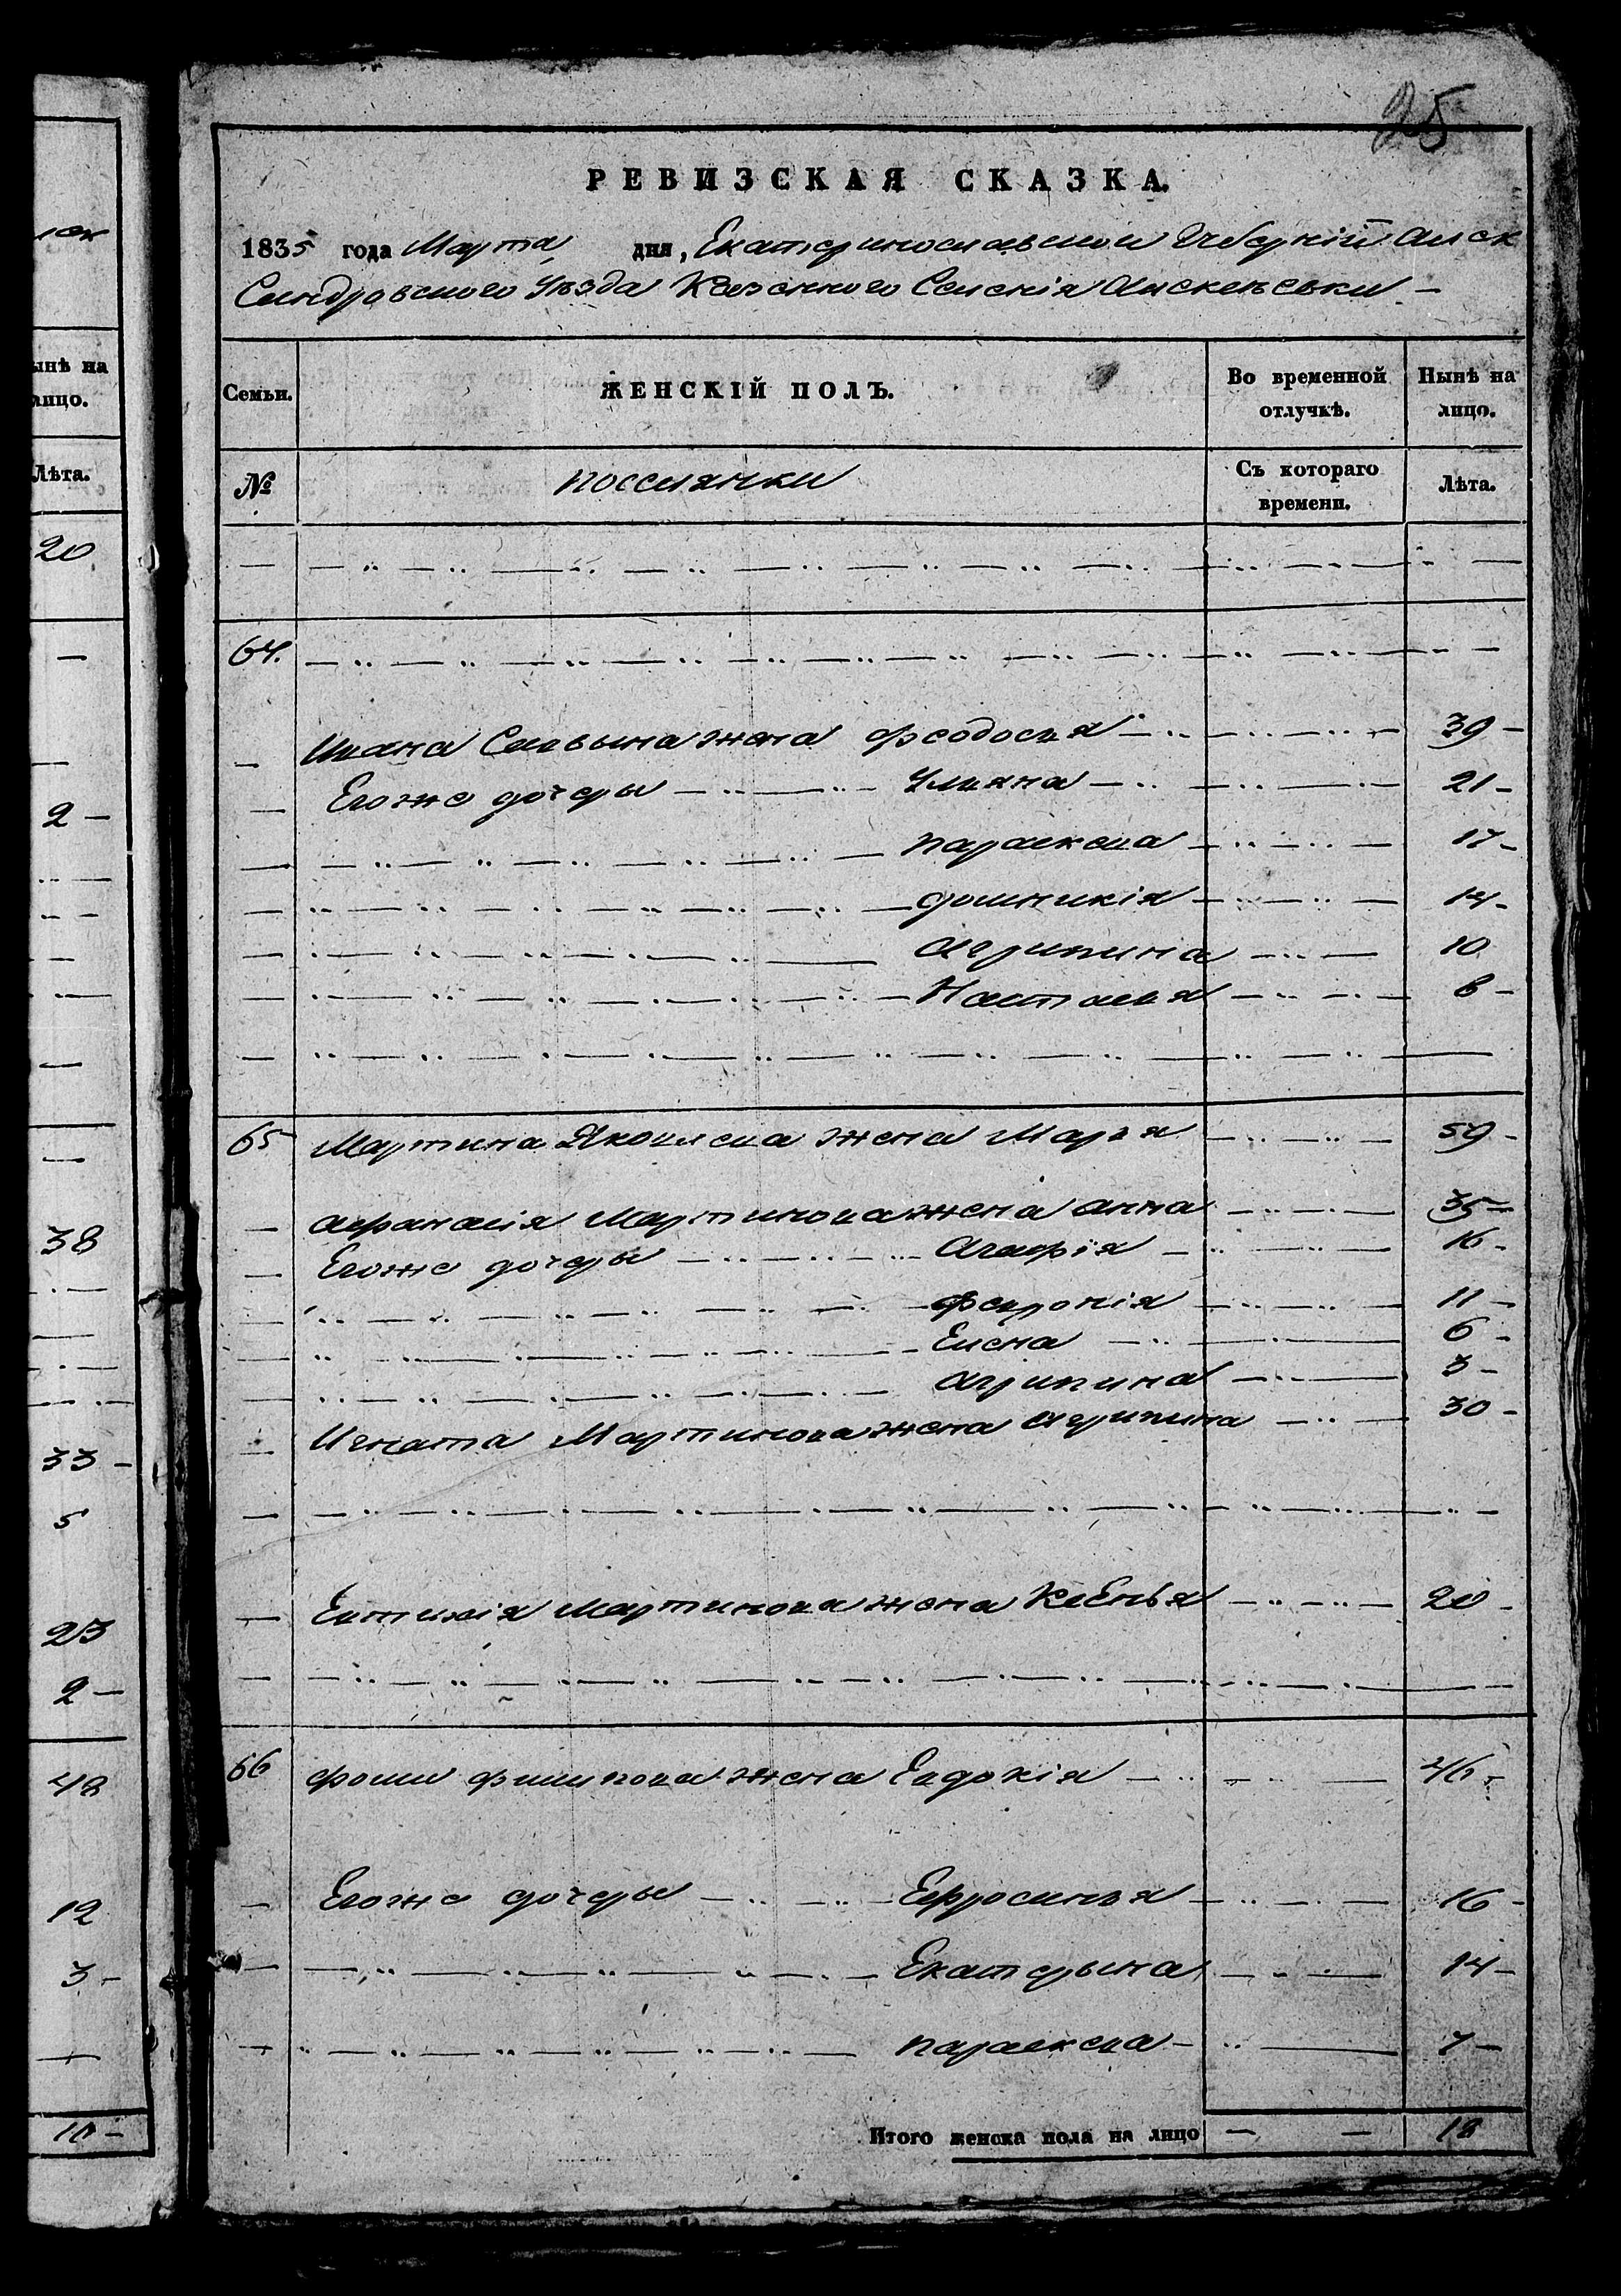 25
РЕВИЗСКАЯ СКАЗКА.
1835 года Марта дня, Екатеринославской Губерніи Алек
сандровского Уѣзда Казенного Селенія Алексѣевки
Семьи. ЖЕНСКІЙ ПОЛЪ. Во временной отлучкѣ. Нынѣ на лицо.
№ поселянки Съ котораго времени. Лѣта.
64.
Ивана Савына жена Феодосия 39
Егоже дочеры Улияна 21
Параскева 17
Домникія 14
Агрипина 10
Настасия 8
65 Мартина Яковлева жена Марья 59
Афанасія Мартинова жена Анна 35
Егоже дочеры Агафія 16
Февронія 11
Елена 6
Агрипина 3
Игната Мартинова жена Агрипина 30
Евтихія Мартинова жена Ксенья 20
66 Фомы Филипова жена Евдокія 46
Егоже дочеры Ефросинья 16
Екатерына 14
Параскева 7
Итого женска пола на лицо 18
ынѣ на
лицо.
Лѣта.
20
2
38
33
5
23
2
48
12
3
10